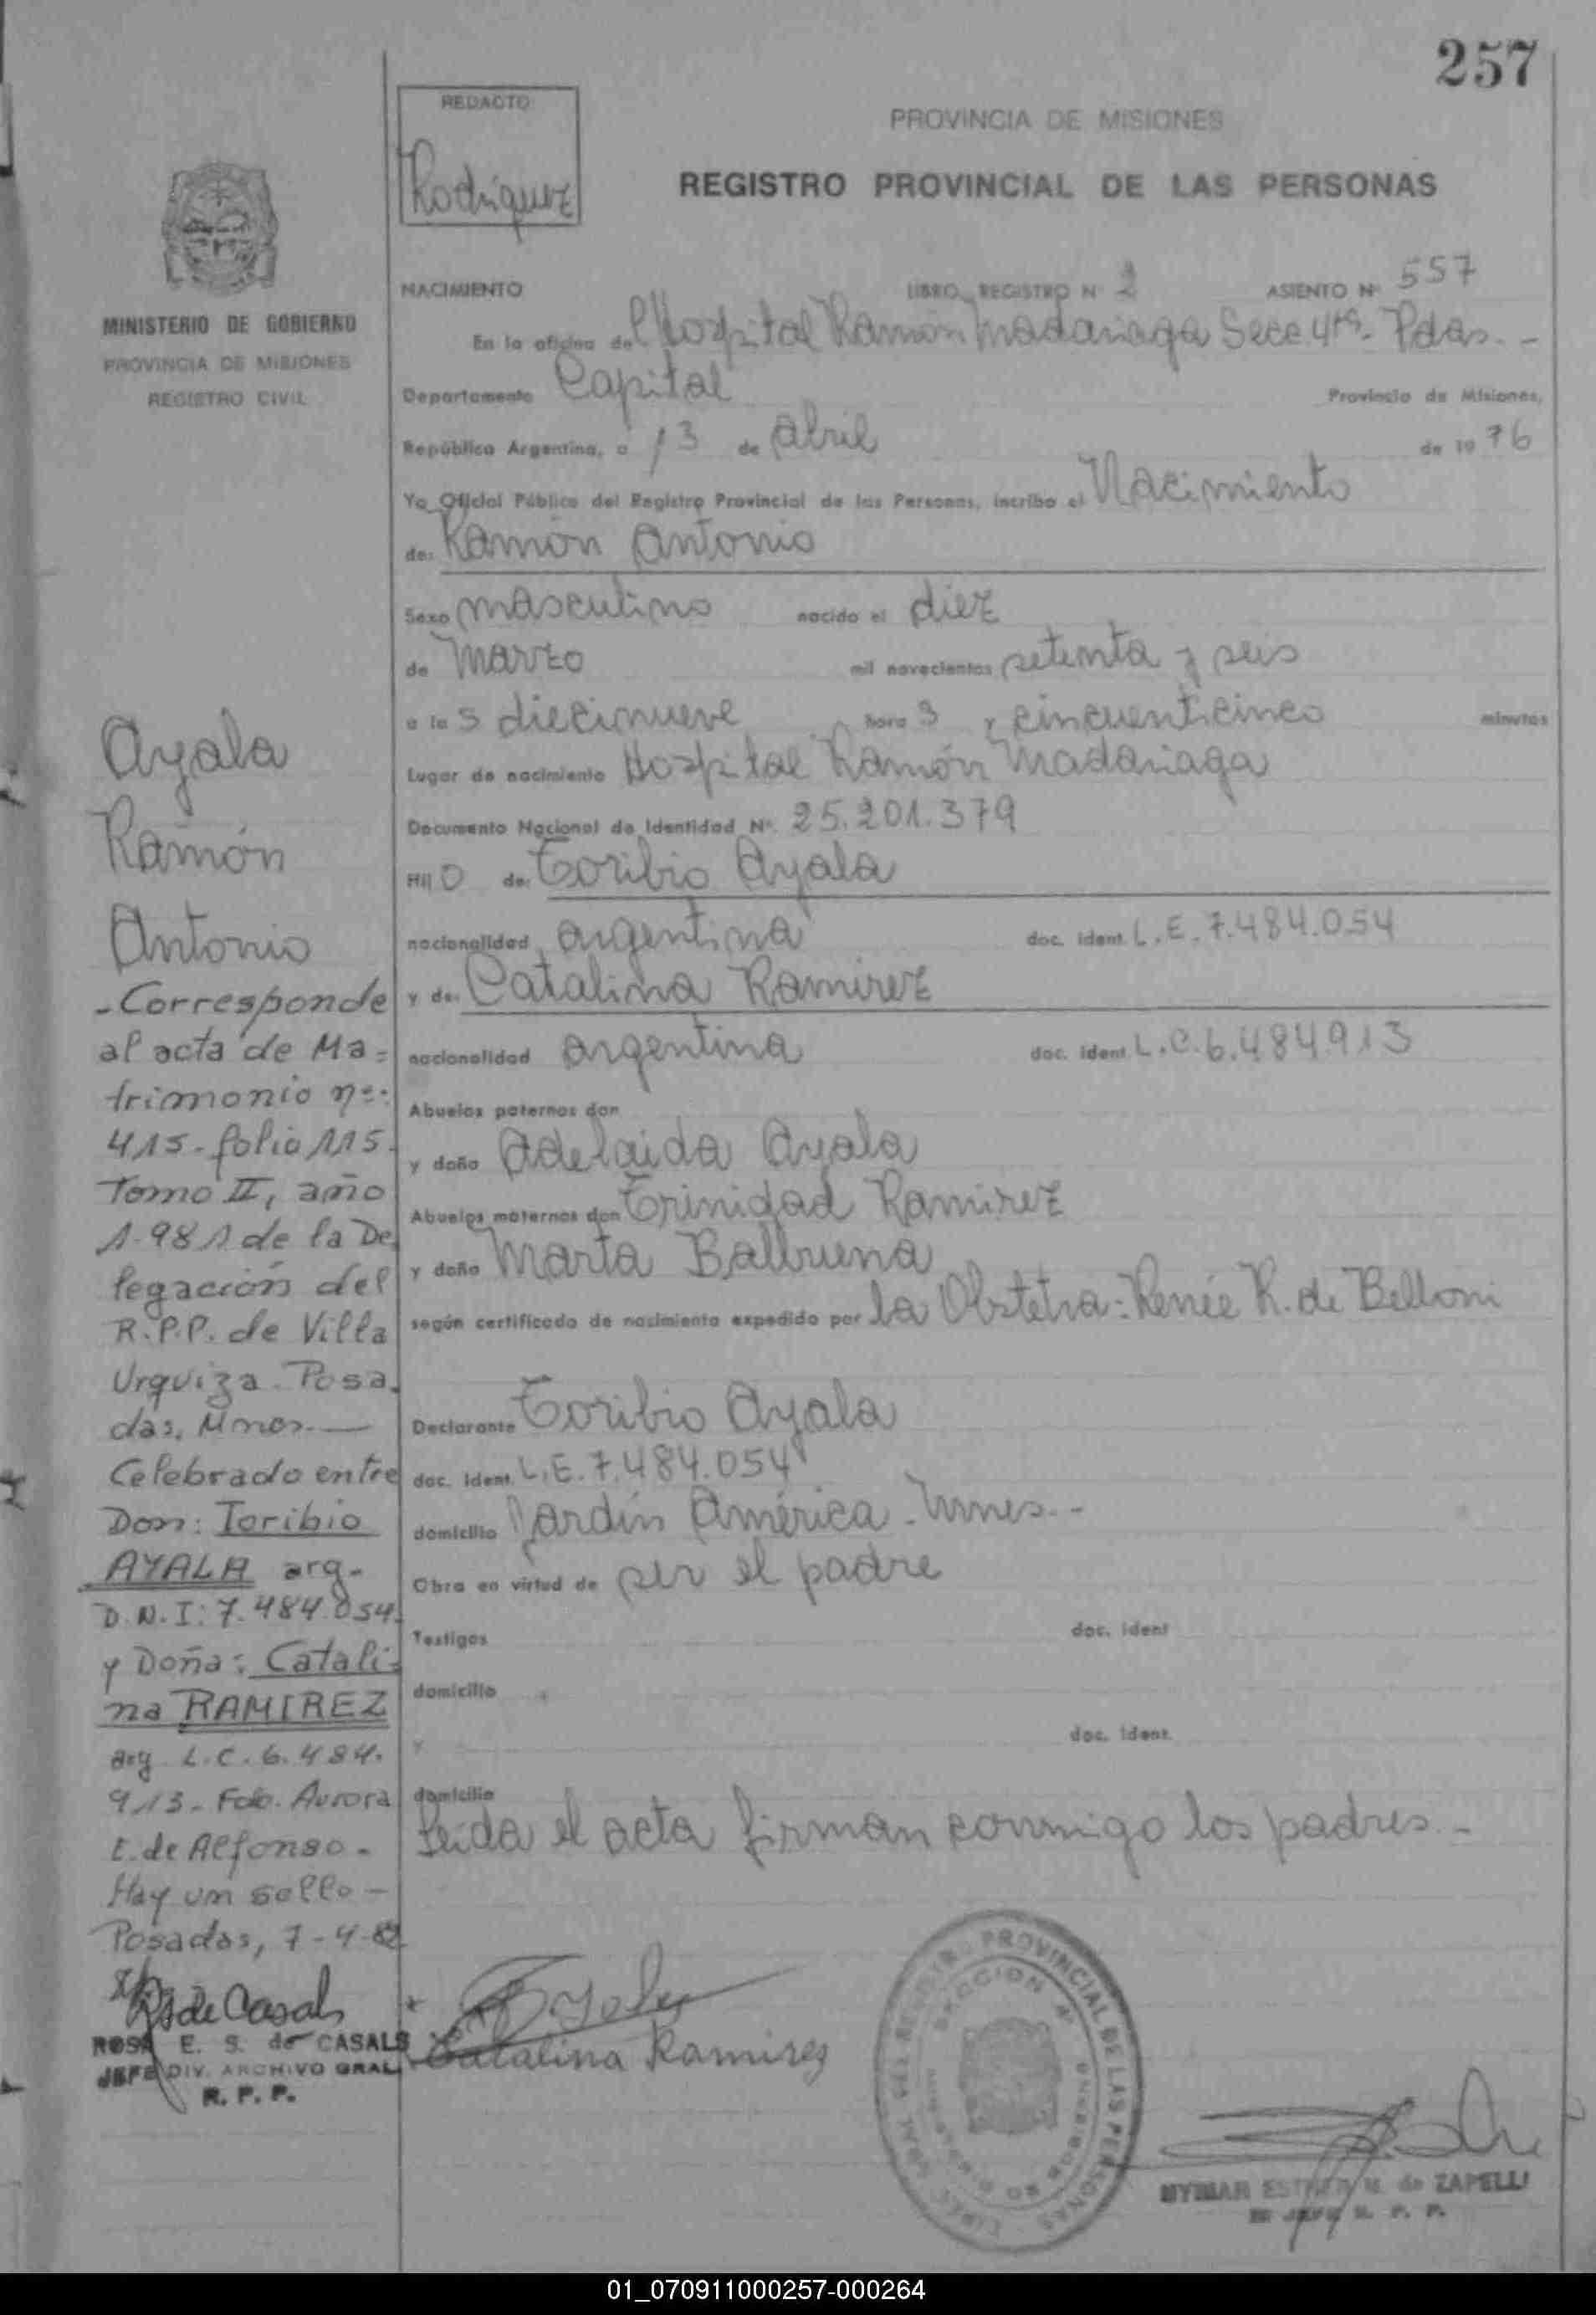 257
REDACTO
Rodriguez
PROVINCIA DE MISIONES
REGISTRO PROVINCIAL DE LAS PERSONAS
MINISTERIO DE GOBIERNO
PROVINCIA DE MISIONES
REGISTRO CIVIL
NACIMIENTO LIBRO REGISTRO N° 2 ASIENTO N° 557
En la oficina del Hospital Ramón Madariaga Secc 4ta. Pdas. -
Departamento Capital Provincia de Misiones,
República Argentina, a 13 de abril de 1976
Yo Oficial Público del Registro Provincial de las Personas, incribo el Nacimiento
de: Ramón Antonio
Sexo masculino nacido el diez
de Marzo mil novecientos setenta y seis
a las diecinueve horas y cincuenticinco minutos
Lugar de nacimiento Hospital Ramón Madariaga
Documento Nacional de Identidad N° 25.201.379
Hijo de: Toribio Ayala
nacionalidad argentina doc. ident. L.E. 7.484.054
y de: Catalina Ramirez
nacionalidad argentina doc. ident. L.C. 6.484.913
Abuelos paternos don
y doña Adelaida Ayala
Abuelos maternos don Trinidad Ramirez
y doña Marta Balbuena
según certificado de nacimiento expedido por la Obstetra: Renée R. de Belloni
Declarante Toribio Ayala
doc. ident. L.E. 7.484.054
domicilio Jardín América - Mnes. -
Obra en virtud de ser el padre
Testigos doc. ident
domicilio
y doc. ident.
domicilio
Leida el acta firman conmigo los padres. -
Ayala
Ramón
Antonio
- Corresponde
al acta de Ma=
trimonio nº:
415 - folio 115 -
Tomo II, año
1.981 de la De
legación del
R.P.P. de Villa
Urquiza - Posa
das, Mnes. —
Celebrado entre
Don: Toribio
AYALA arg.
D.N.I: 7.484.054
y Doña: Catali=
na RAMIREZ
arg L.C. 6.484.
913 - Fdo. Aurora
E. de Alfonso -
Hay un sello -
Posadas, 7-4-82
R S de Casals
ROSA E. S. de CASALS
JEFE DIV. ARCHIVO GRAL
R. P. P.
Catalina Ramirez
REGISTRO PROVINCIAL DE LAS PERSONAS
SECCION 4ª
ESTHER M. de ZAPELLI
JEFE R. P. P.
01_070911000257-000264